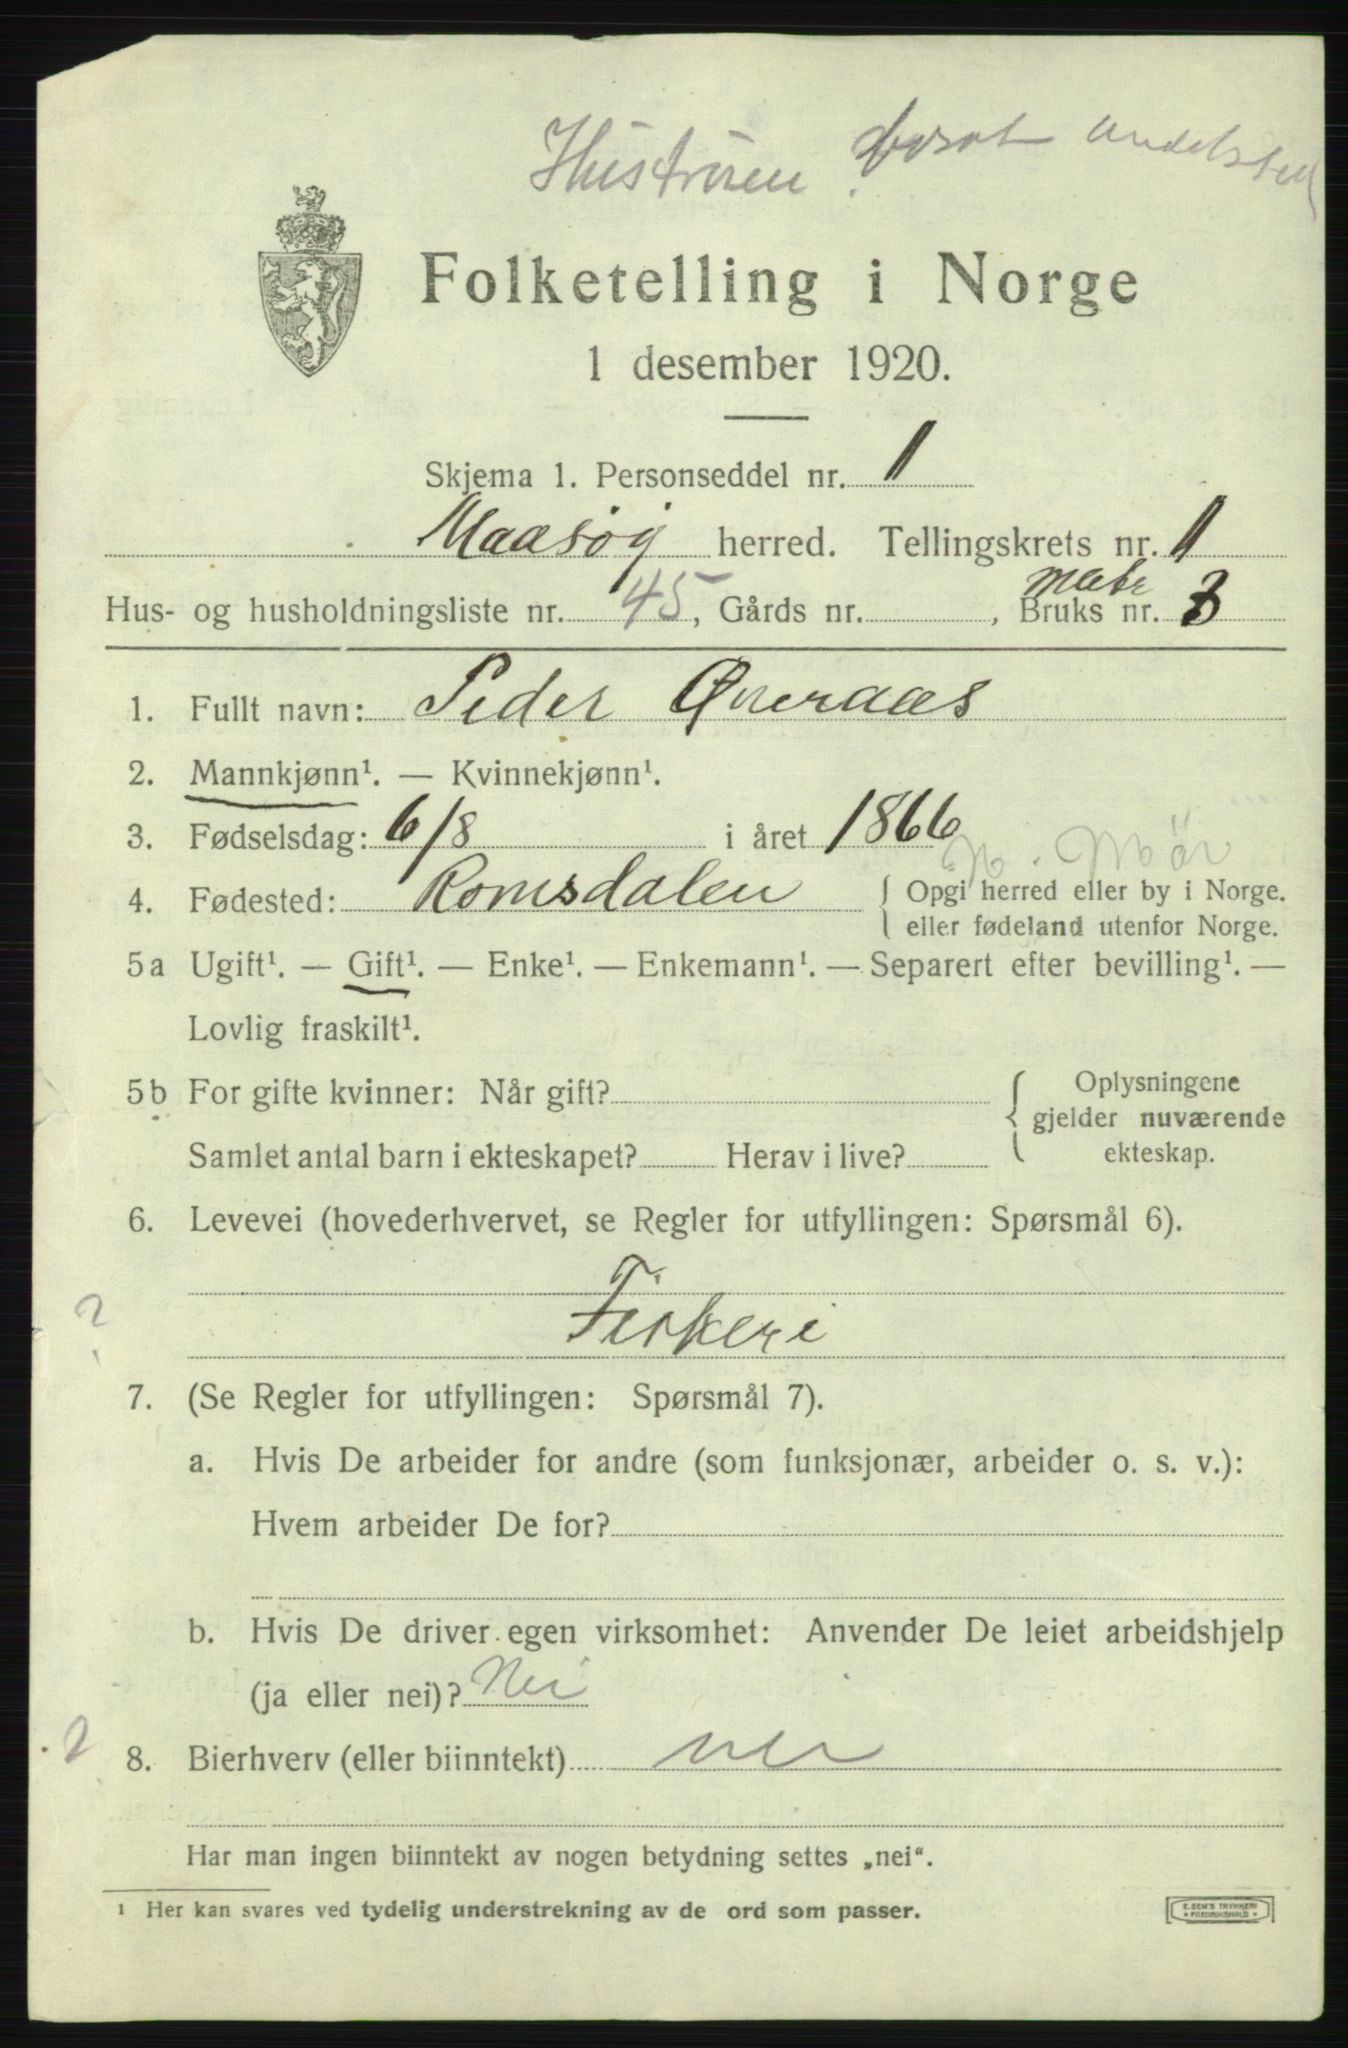 Hustruen bosat andetsted
Folketelling i Norge
1 desember 1920.
Skjema 1. Personseddel nr. 1
Maasøy herred. Tellingskrets nr. 1
Matr
Hus- og husholdningsliste nr. 45, Gårds nr. , Bruks nr. 3
1. Fullt navn: Peder Øveraas
2. Mannkjønn¹. — Kvinnekjønn¹.
3. Fødselsdag: 6/8 i året 1866
N. Mör
4. Fødested: Romsdalen { Opgi herred eller by i Norge.
eller fødeland utenfor Norge.
5a Ugift¹. — Gift¹. — Enke¹. — Enkemann¹. — Separert efter bevilling¹. —
Lovlig fraskilt¹.
5b For gifte kvinner: Når gift? { Oplysningene
gjelder nuværende
Samlet antal barn i ekteskapet? Herav i live? ekteskap.
6. Levevei (hovederhvervet, se Regler for utfyllingen: Spørsmål 6).
?
Fiskeri
7. (Se Regler for utfyllingen: Spørsmål 7).
a. Hvis De arbeider for andre (som funksjonær, arbeider o. s. v.):
Hvem arbeider De for?
b. Hvis De driver egen virksomhet: Anvender De leiet arbeidshjelp
(ja eller nei)? Nei
? 8. Bierhverv (eller biinntekt) nei
Har man ingen biinntekt av nogen betydning settes „nei“.
¹ Her kan svares ved tydelig understrekning av de ord som passer.
E. SEM'S TRYKKERI
FREDRIKSHALD